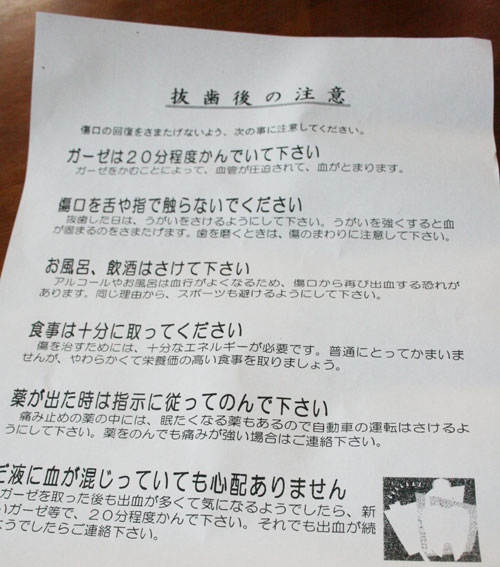 抜歯後の注意
傷口の回復をさまたげないよう、次の事に注意してください。
ガーゼは20分程度かんでいて下さい
ガーゼをかむことによって、血管が圧迫されて、血がとまります。
傷口を舌や指で触らないでください
抜歯した日は、うがいをさけるようにして下さい。うがいを強くすると血
が固まるのをさまたげます。歯を磨くときは、傷のまわりに注意して下さい。
お風呂、飲酒はさけて下さい
アルコールやお風呂は血行がよくなるため、傷口から再び出血する恐れが
あります。同じ理由から、スポーツも避けるようにして下さい。
食事は十分に取ってください
傷を治すためには、十分なエネルギーが必要です。普通にとってかまいま
せんが、やわらかくて栄養価の高い食事を取りましょう。
薬が出た時は指示に従ってのんで下さい
痛み止めの薬の中には、眠たくなる薬もあるので自動車の運転はさけるよ
うにして下さい。薬をのんでも痛みが強い場合はご連絡下さい。
だ液に血が混じっていても心配ありません
ガーゼを取った後も出血が多くて気になるようでしたら、新
いガーゼ等で、20分程度かんで下さい。それでも出血が続
ようでしたらご連絡下さい。